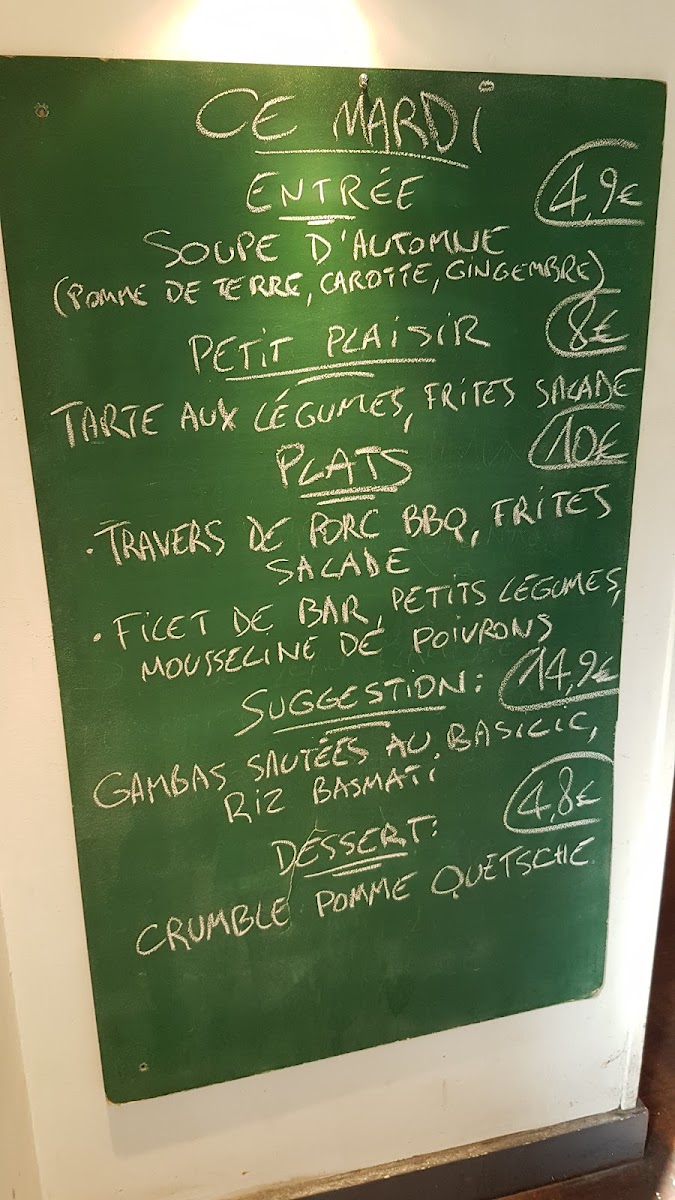 CE MARDI
ENTRÉE 4,9€
SOUPE D'AUTOMNE
(POMME DE TERRE, CAROTTE, GINGEMBRE)
PETIT PLAISIR 8€
TARTE AUX LÉGUMES, FRITES SALADE
PLATS 10€
• TRAVERS DE PORC BBQ, FRITES
SALADE
• FILET DE BAR, PETITS LÉGUMES,
MOUSSELINE DE POIVRONS
SUGGESTION: 14,9€
GAMBAS SAUTÉES AU BASILIC,
RIZ BASMATI
DESSERT: 4,8€
CRUMBLE POMME QUETSCHE.